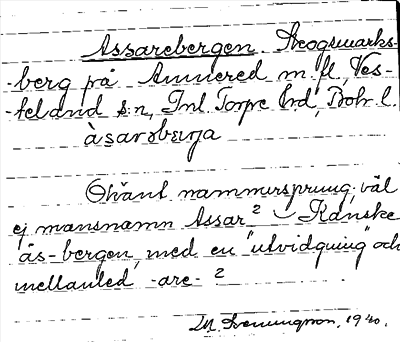 Assarebergen Skogsmarks-
-berg på Amnered m. fl., Ves-
-terland s:n, Inl. Torpe hrd, Boh. l.
àsarəbærja
Okänt namnursprung; väl
ej mansnamn Assar? Kanske
ås-bergen, med en "utvidgning" och
mellanled -are- ?
1940.